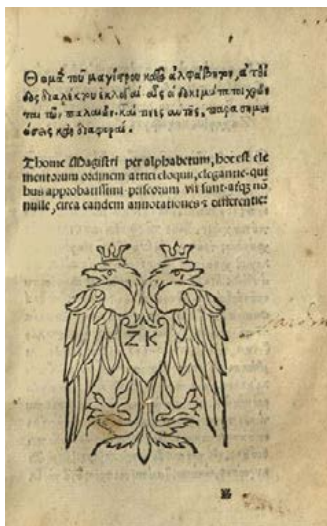 Θομᾶ τοῦ μαγίστρου κατὰ ἀλφάβητον, ἀτθί
δος διαλέκτου ἐκλογαὶ αἷς οἱ δοκιμώτατοι χρῶν
ται τῶν παλαιῶν. καὶ τινες αὐτῆς, παρασημει
ώσεις καὶ διαφοραί.
Thome Magistri per alphabetum, hoc est ele
mentorum ordinem attici eloquii, elegantie, qui
bus approbatissimi priscorum usi sunt. atq; nō
nulle, circa eandem annotationes & differentie:
ΖΚ